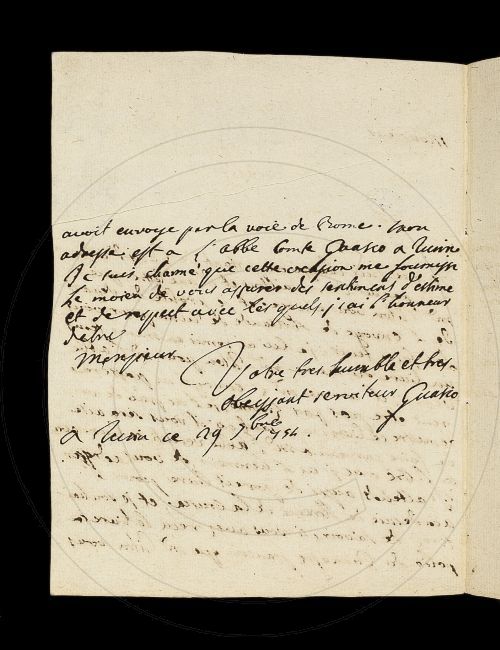 avoit envoyé par la voie de Rome. mon
adresse est a l'abbé Comte Guasco a Turin
Je suis charmé que cette occasion me fournisse
le moien de vous assurer des sentimens d'estime
et de respect avec lesquels j'ai l'honneur
d'etre
Monsieur
Votre tres humble et tres
obeyssant serviteur Guasco
a Turin ce 29 7bre 1754.